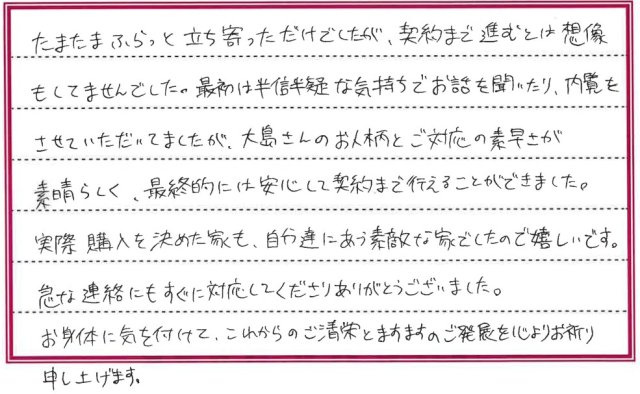 たまたまふらっと立ち寄っただけでしたが、契約まで進むとは想像
もしてませんでした。最初は半信半疑な気持ちでお話を聞いたり、内覧を
させていただいてましたが、大島さんのお人柄とご対応の素早さが
素晴らしく、最終的には安心して契約まで行えることができました。
実際購入を決めた家も、自分達にあう素敵な家でしたので嬉しいです。
急な連絡にもすぐに対応してくださりありがとうございました。
お身体に気を付けて、これからのご清栄とますますのご発展を心よりお祈り
申し上げます。